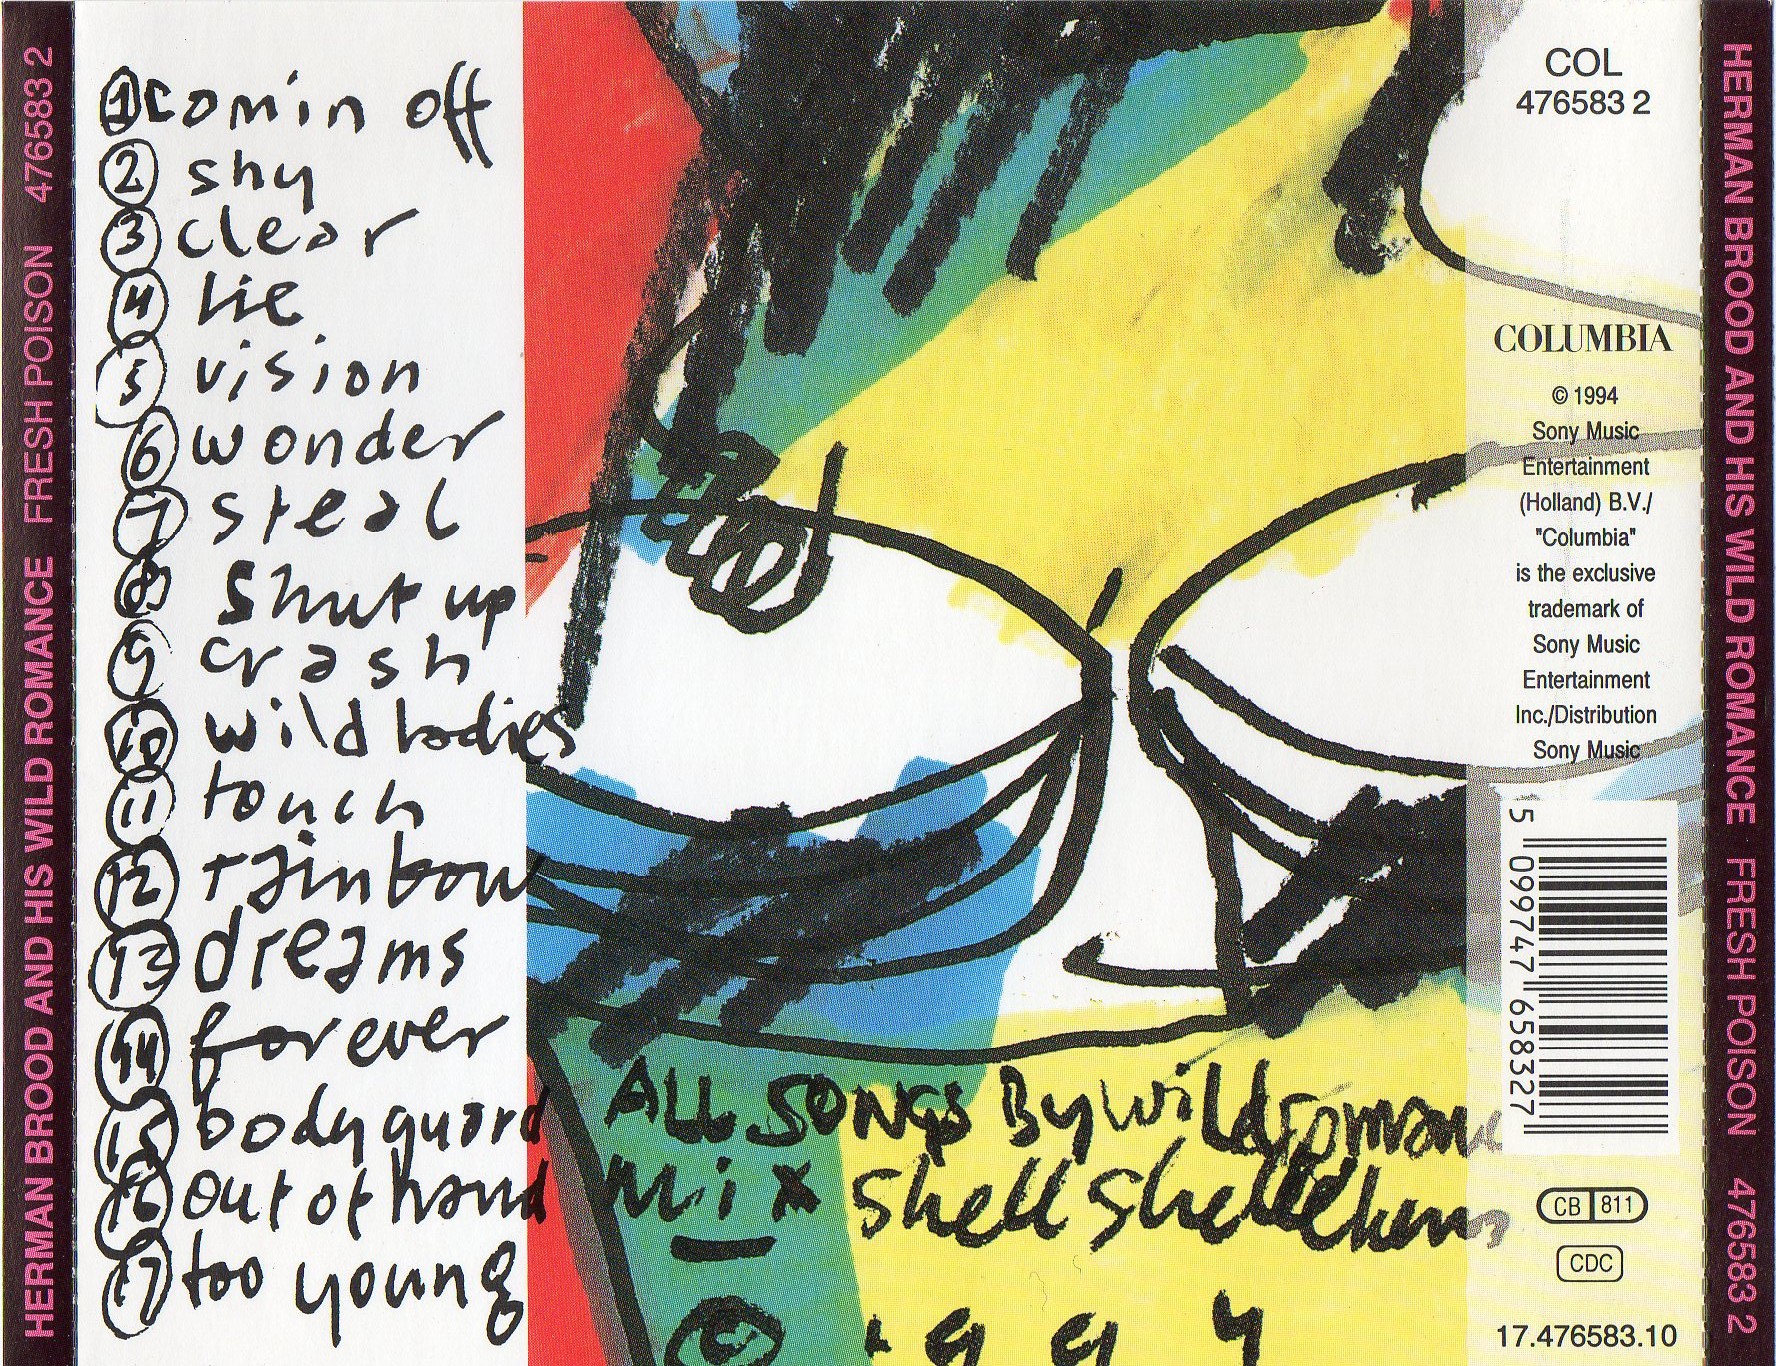 HERMAN BROOD AND HIS WILD ROMANCE FRESH POISON 476583 2
1 comin off
2 shy
3 clear
4 lie
5 vision
6 wonder
7 steal
8 shut up
9 crash
10 wild ladies
11 touch
12 rainbow
13 dreams
14 forever
15 bodyguard
16 out of hand
17 too young
ALL SONGS By wild romance
mix Shell Schellekens
© 1994
COL
476583 2
COLUMBIA
© 1994
Sony Music
Entertainment
(Holland) B.V./
"Columbia"
is the exclusive
trademark of
Sony Music
Entertainment
Inc./Distribution
Sony Music
5 099747 658327
CB 811
CDC
17.476583.10
HERMAN BROOD AND HIS WILD ROMANCE FRESH POISON 476583 2